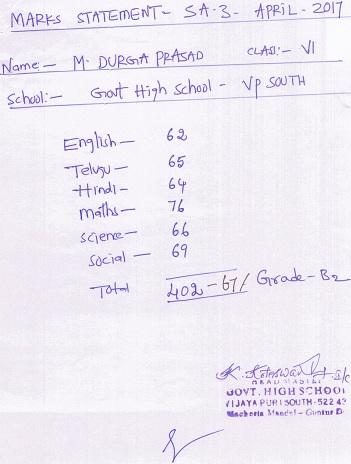 MARKS STATEMENT - SA-3- APRIL-2017
Name:- M. DURGA PRASAD CLASS:- VI
School:- Govt High School - VP SOUTH
English - 62
Telugu - 65
Hindi - 64
maths - 76
science - 66
social - 69
Total 402-67/ Grade-B2
HEAD MASTER
GOVT. HIGH SCHOOL
VIJAYAPURI SOUTH-522 43
Macherla Mandal - Guntur D